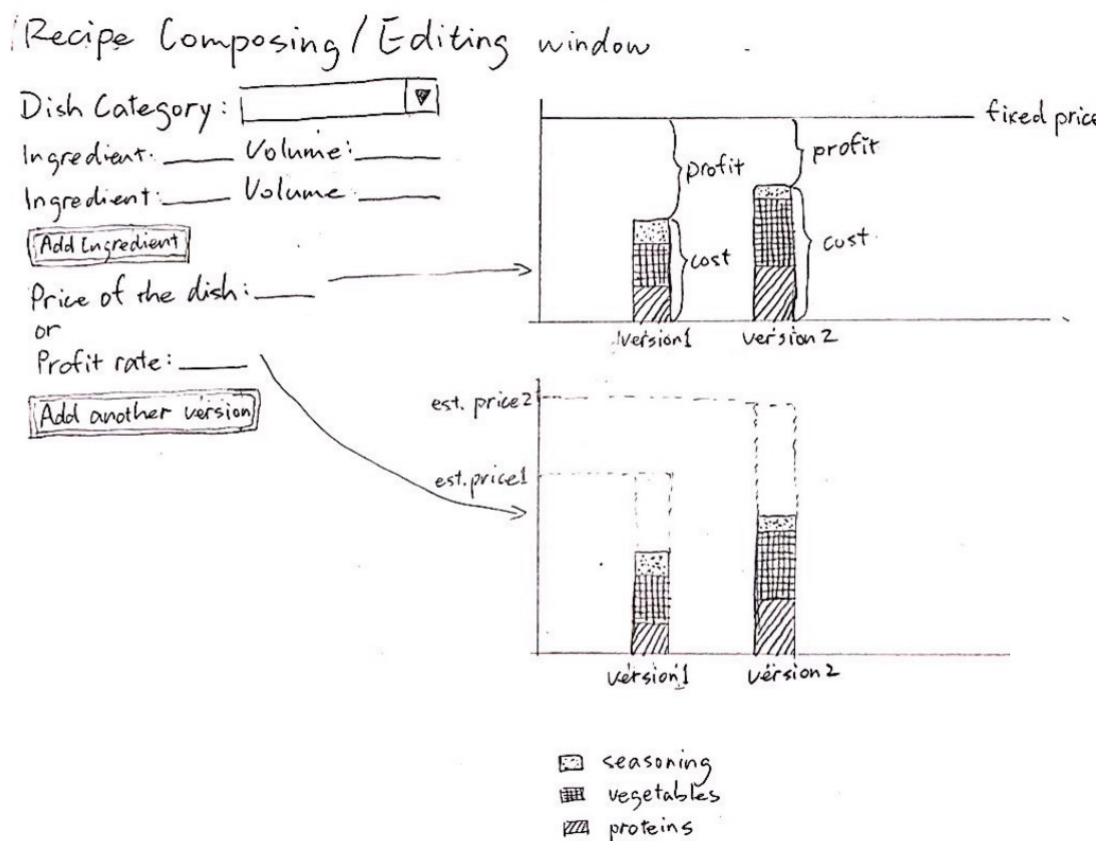 Recipe Composing / Editing window
Dish Category:
Ingredient: Volume:
Ingredient: Volume:
Add Ingredient
Price of the dish:
or
Profit rate:
Add another version
fixed price
profit
profit
cost
cost
version1 version 2
est. price2
est. price1
version1 version2
seasoning
vegetables
proteins